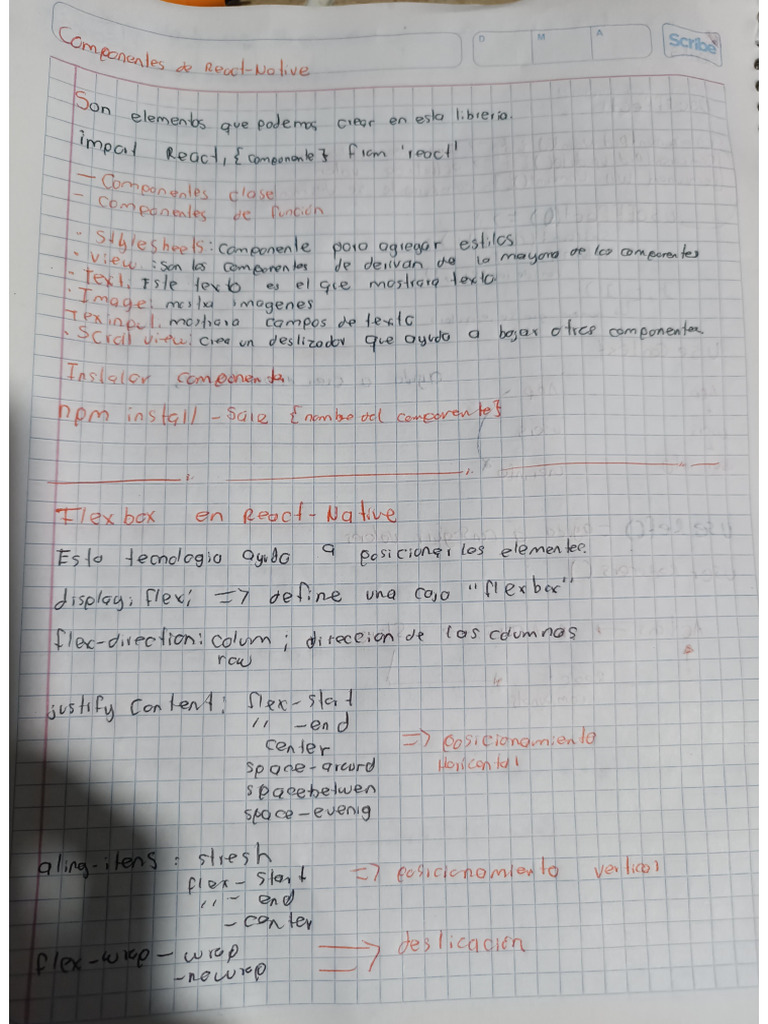 D M A Scribe
Componentes de React-Native
Son elementos que podemos crear en esta libreria.
impot React, {componente} from 'react'
- Componentes clase
- componentes de función
· Stylesheets: componente para agregar estilos
· View : son los componentes de derivan de la mayoria de los componentes
· text. Este texto es el que mostrara texto
· Image: mostra imagenes
Texinput. mostrara campos de texto
· Scroll view: crea un deslizador que ayuda a bajar otros componentes
Instalar componente
npm install -save {nombre del componente}
Flexbox en React-Native
Esta tecnologia ayuda a posicionar los elementos.
display: flex; => define una caja "flexbox"
flex-direction: colum ; direccion de las columnas
row
justify content: flex-start
'' -end
center
=> posicionamiento
space-around
Horizontal
spacebetwen
space-evenig
aling-itens : stresh
flex-start => posicionamiento vertical
'' - end
- center
flex-wrap - wrap => deslicación
- nowrap